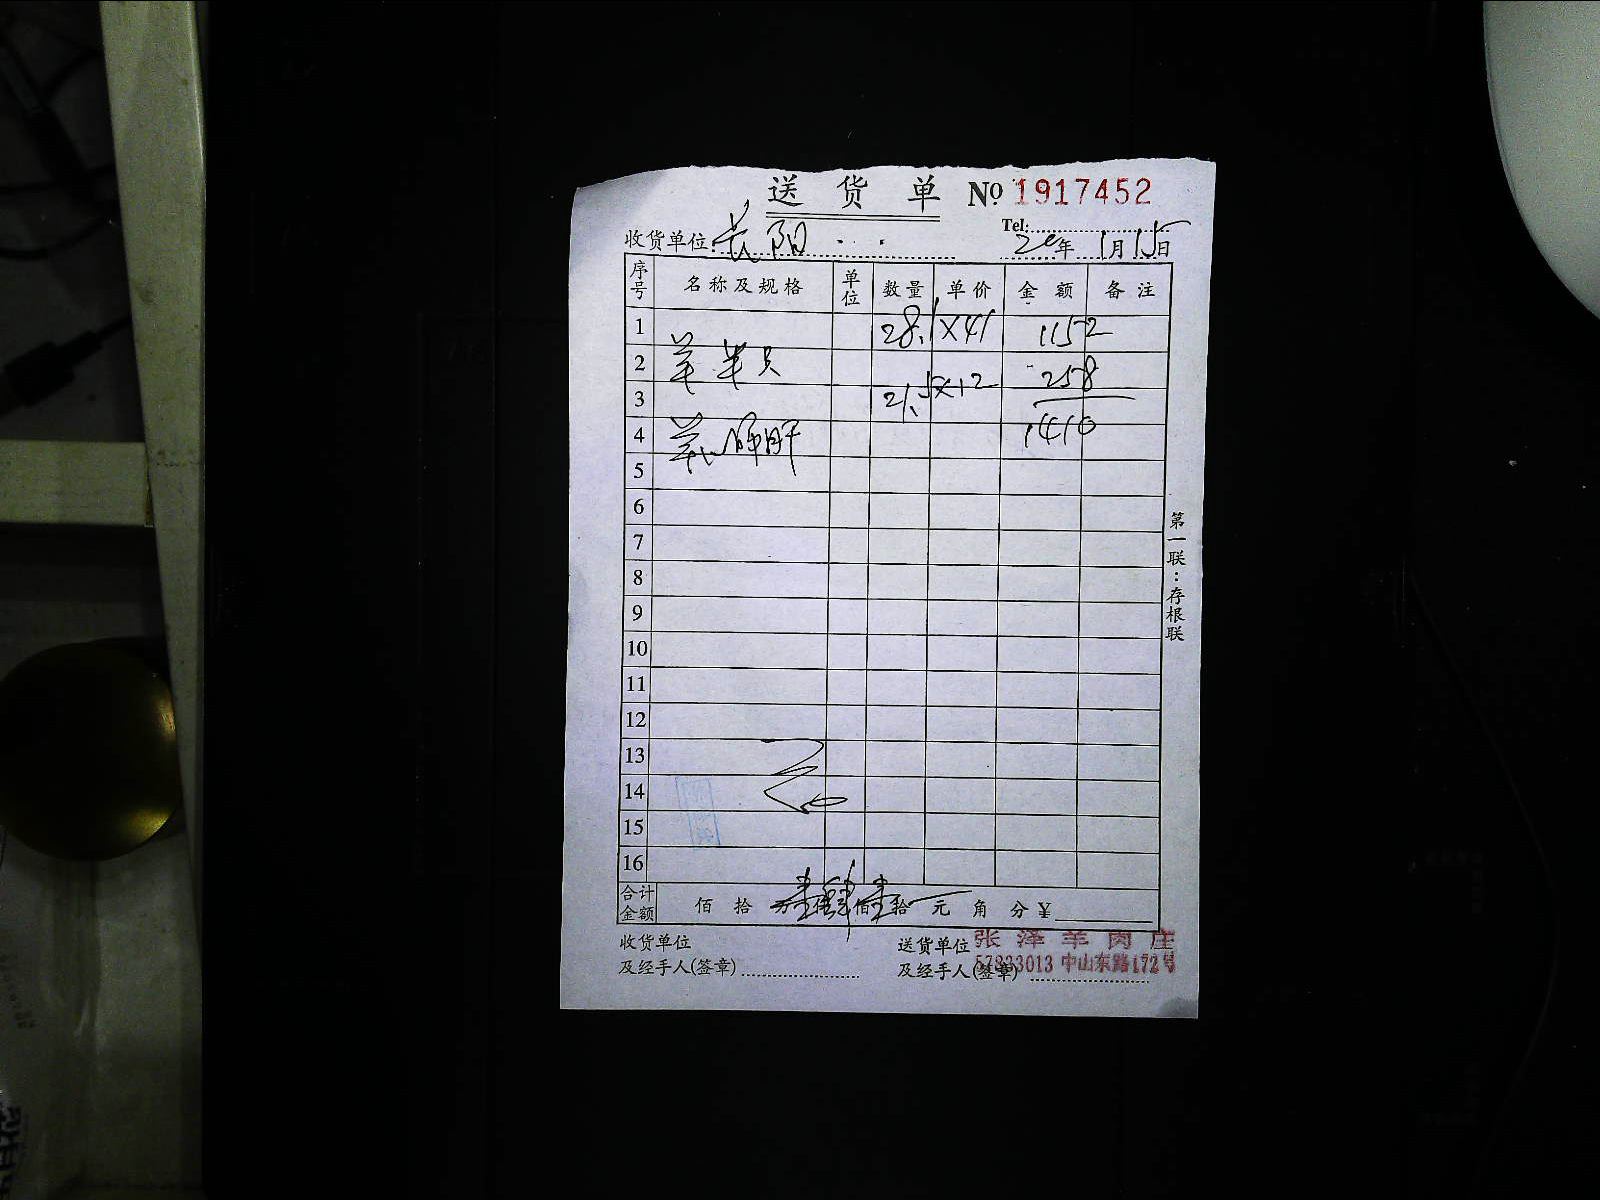 送货单 № 1917452
Tel:
收货单位: 长阳 20年1月15日
序号 名称及规格 单位 数量 单价 金额 备注
1 28.1×41 1152
2 羊半只 258
3 21.5×12
4 羊心肺肝 1410
5
6
7
8
9
10
11
12
13
14
15
16
合计金额 佰 拾 万 壹仟 肆佰 壹拾 元 角 分 ¥
收货单位 送货单位 张泽羊肉庄
及经手人(签章) 及经手人(签章) 57833013 中山东路172号
第一联:存根联